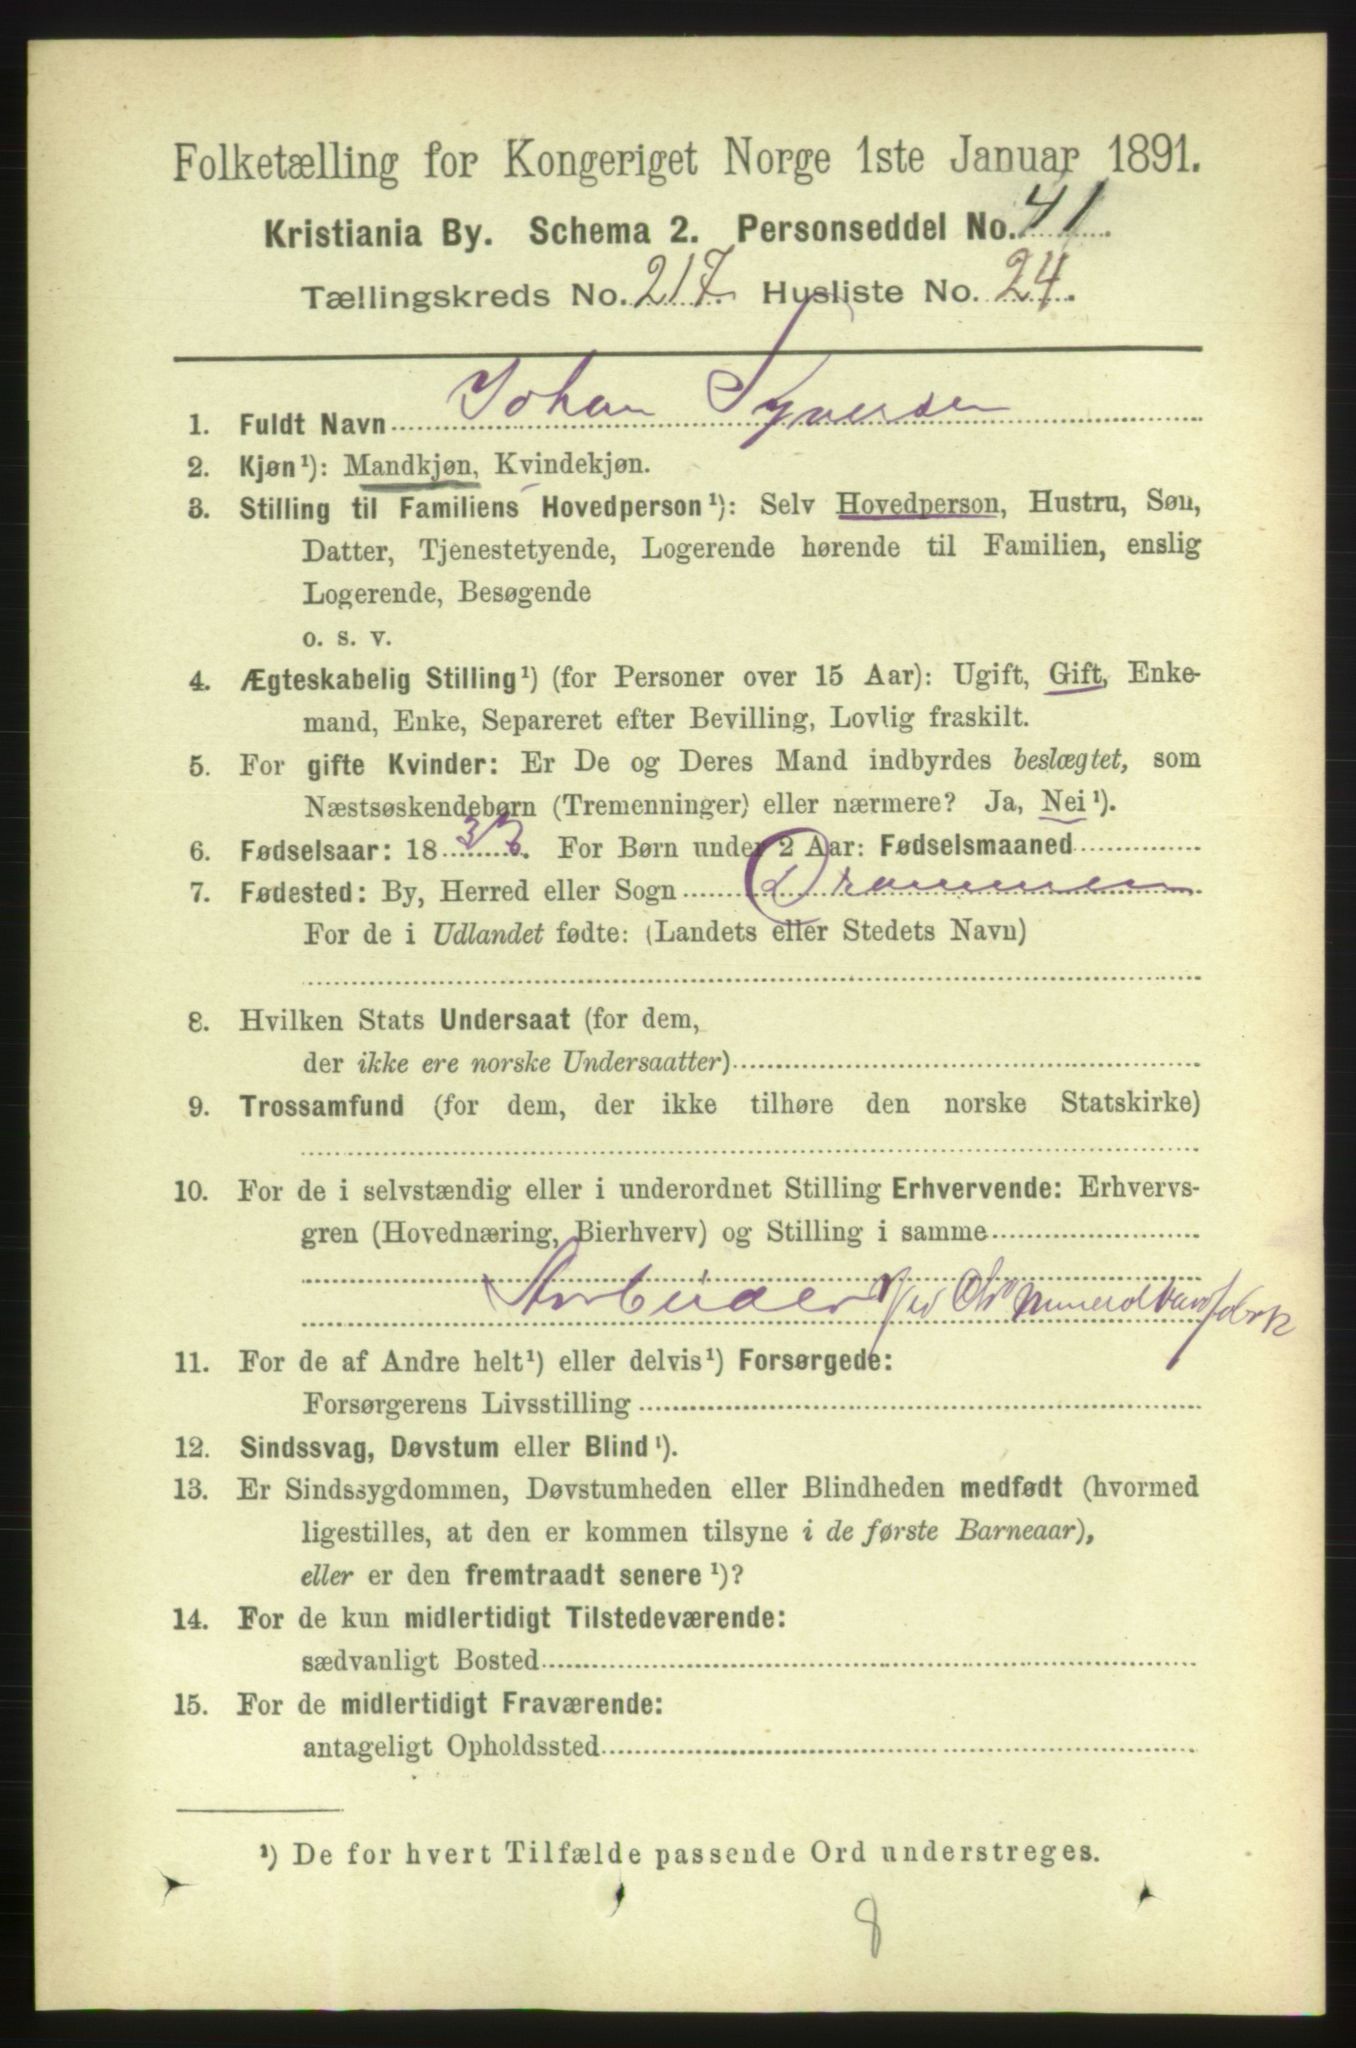 Folketælling for Kongeriget Norge 1ste Januar 1891.
Kristiania By. Schema 2. Personseddel No. 41.
Tællingskreds No. 217. Husliste No. 24.
1. Fuldt Navn Johan Syversen
2. Kjøn¹): Mandkjøn, Kvindekjøn.
3. Stilling til Familiens Hovedperson¹): Selv Hovedperson, Hustru, Søn,
Datter, Tjenestetyende, Logerende hørende til Familien, enslig
Logerende, Besøgende
o. s. v.
4. Ægteskabelig Stilling¹) (for Personer over 15 Aar): Ugift, Gift, Enke-
mand, Enke, Separeret efter Bevilling, Lovlig fraskilt.
5. For gifte Kvinder: Er De og Deres Mand indbyrdes beslægtet, som
Næstsøskendebørn (Tremenninger) eller nærmere? Ja, Nei¹).
6. Fødselsaar: 1833. For Børn under 2 Aar: Fødselsmaaned
7. Fødested: By, Herred eller Sogn Drammen
For de i Udlandet fødte: (Landets eller Stedets Navn)
8. Hvilken Stats Undersaat (for dem,
der ikke ere norske Undersaatter)
9. Trossamfund (for dem, der ikke tilhøre den norske Statskirke)
10. For de i selvstændig eller i underordnet Stilling Erhvervende: Erhvervs-
gren (Hovednæring, Bierhverv) og Stilling i samme
Arbeider ved
11. For de af Andre helt¹) eller delvis¹) Forsørgede:
Forsørgerens Livsstilling
12. Sindssvag, Døvstum eller Blind¹).
13. Er Sindssygdommen, Døvstumheden eller Blindheden medfødt (hvormed
ligestilles, at den er kommen tilsyne i de første Barneaar),
eller er den fremtraadt senere¹)?
14. For de kun midlertidigt Tilstedeværende:
sædvanligt Bosted
15. For de midlertidigt Fraværende:
antageligt Opholdssted
¹) De for hvert Tilfælde passende Ord understreges.
8